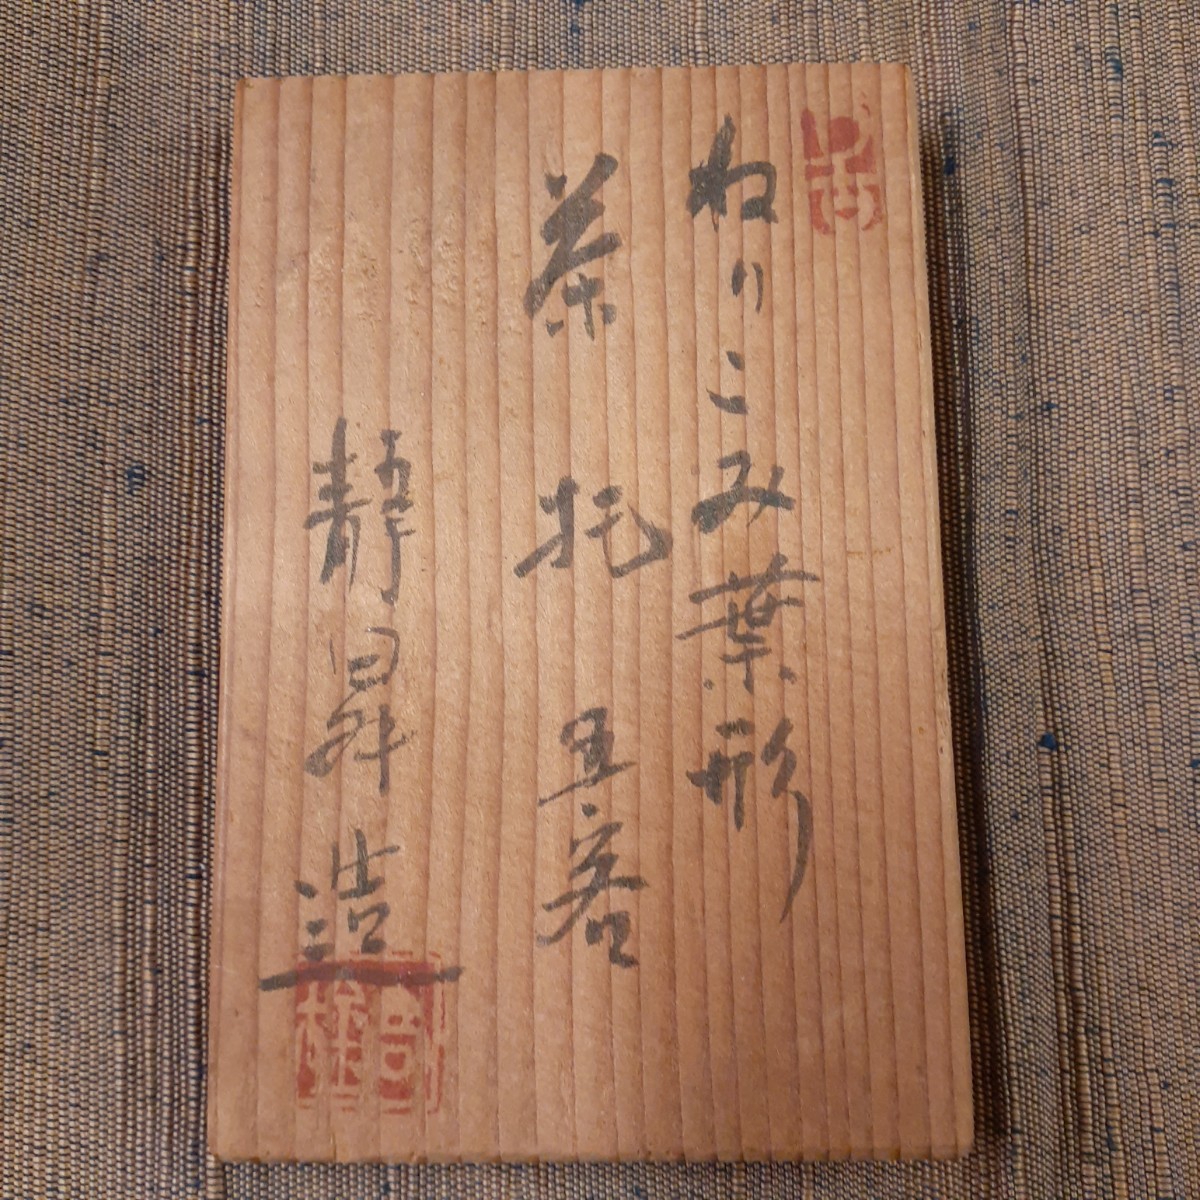 ねりこみ葉形
茶托 五客
静昇 浩